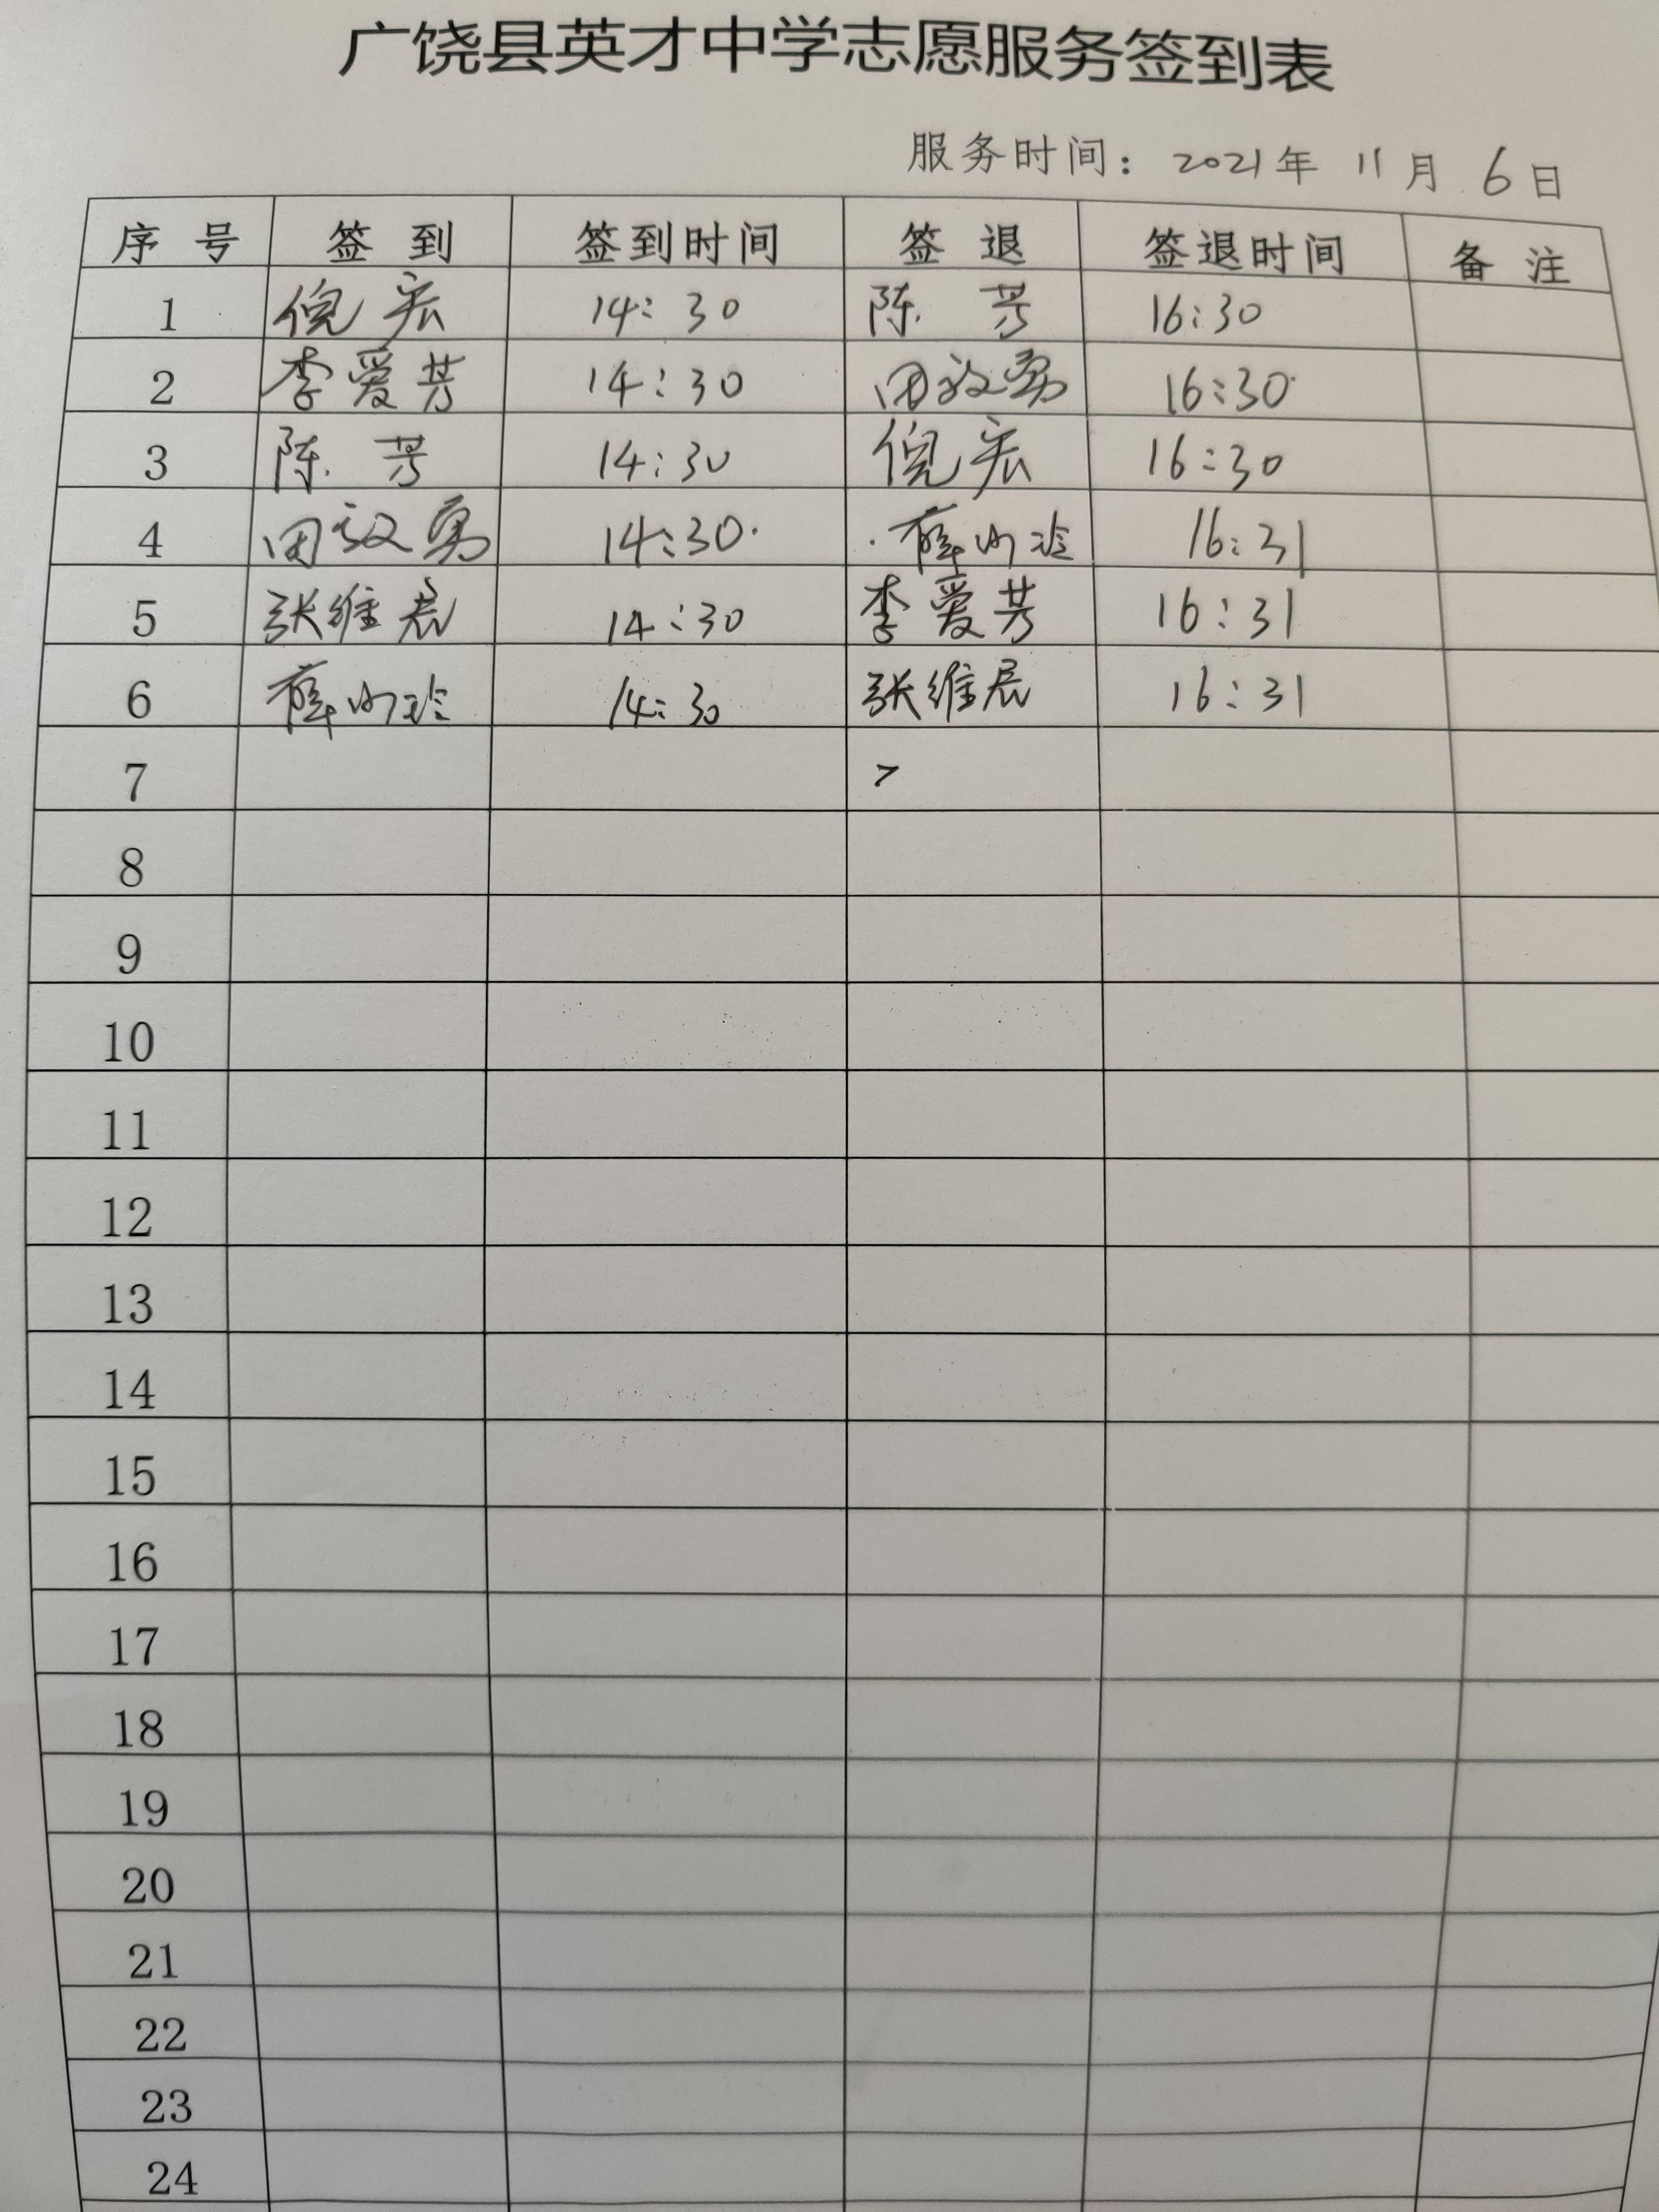 广饶县英才中学志愿服务签到表
服务时间：2021年 11月 6日
序号 签到 签到时间 签退 签退时间 备注
1 倪宏 14:30 陈芳 16:30
2 李爱芳 14:30 田效勇 16:30
3 陈芳 14:30 倪宏 16:30
4 田效勇 14:30 薛 16:31
5 张维宸 14:30 李爱芳 16:31
6 薛 14:30 张维宸 16:31
7
8
9
10
11
12
13
14
15
16
17
18
19
20
21
22
23
24